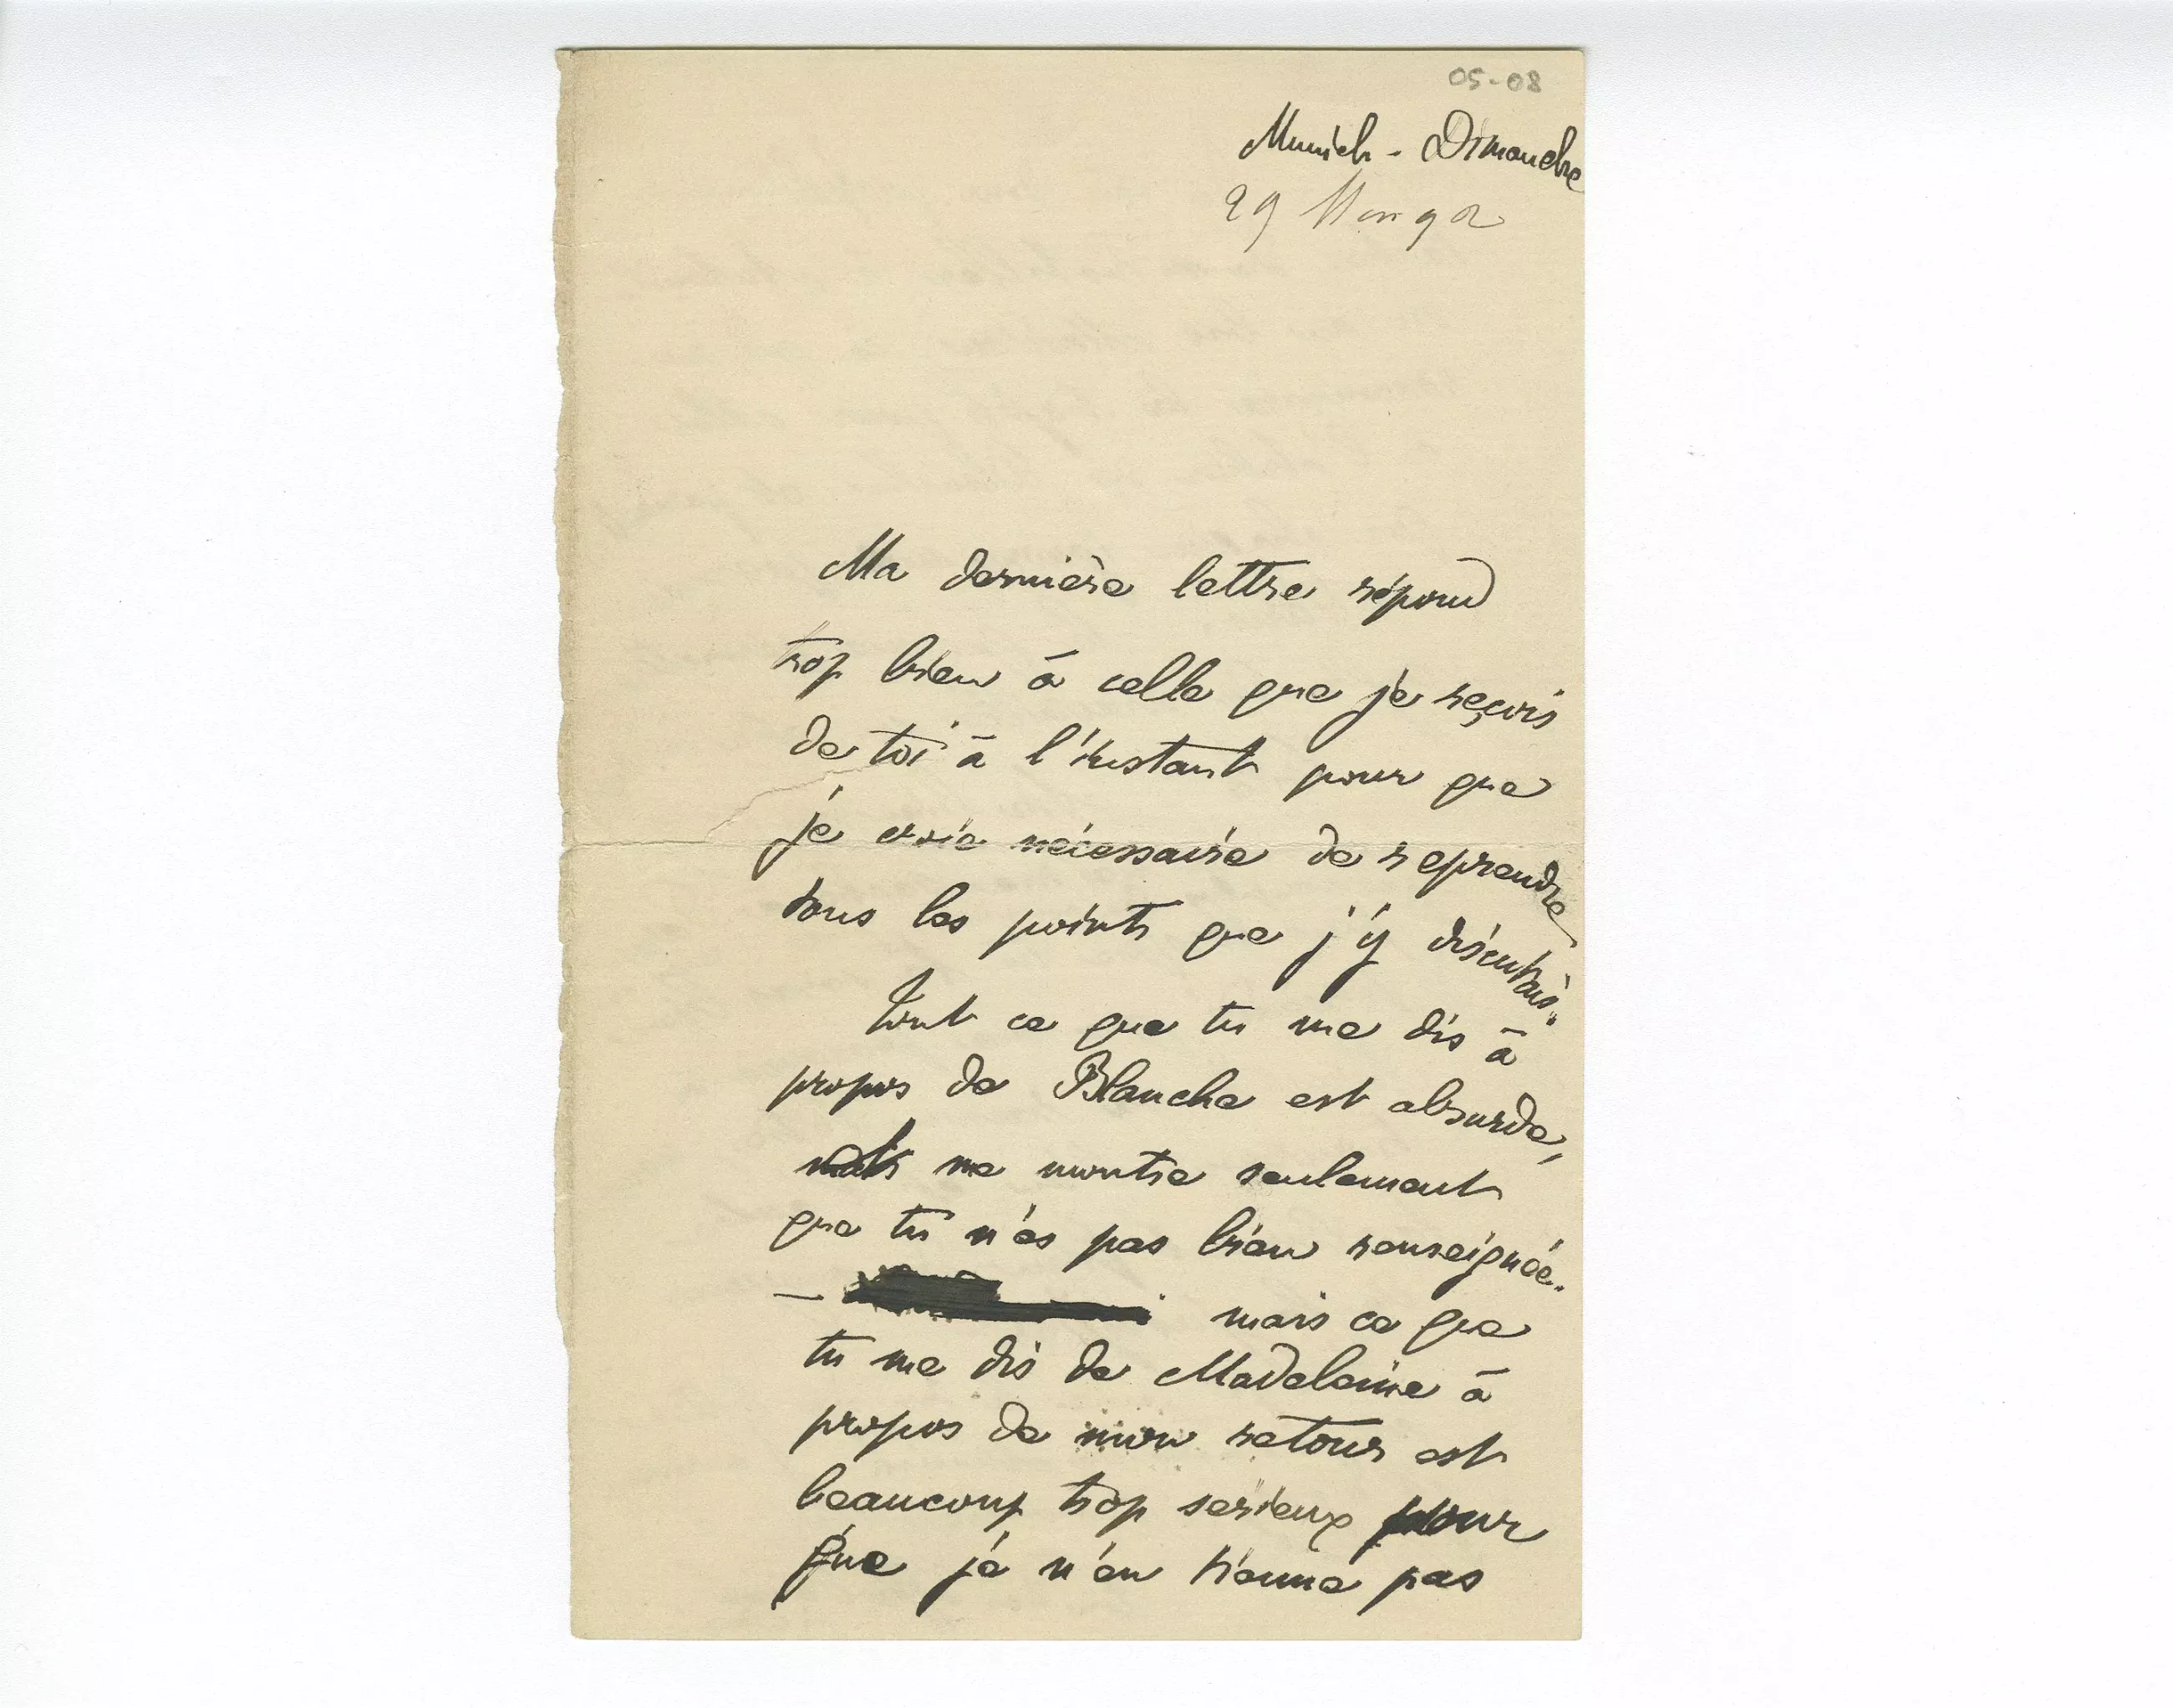 05-08
Munich - Dimanche
29 Mai 92
Ma dernière lettre répond
trop bien à celle que je reçois
de toi à l'instant pour que
je croie nécessaire de reprendre
tous les points que j'y discutais.
Tout ce que tu me dis à
propos de Blanche est absurde,
me montre seulement
que tu n'es pas bien renseignée.
— mais ce que
tu me dis de Madeleine à
propos de mon retour est
beaucoup trop serieux pour
que je n'en tienne pas